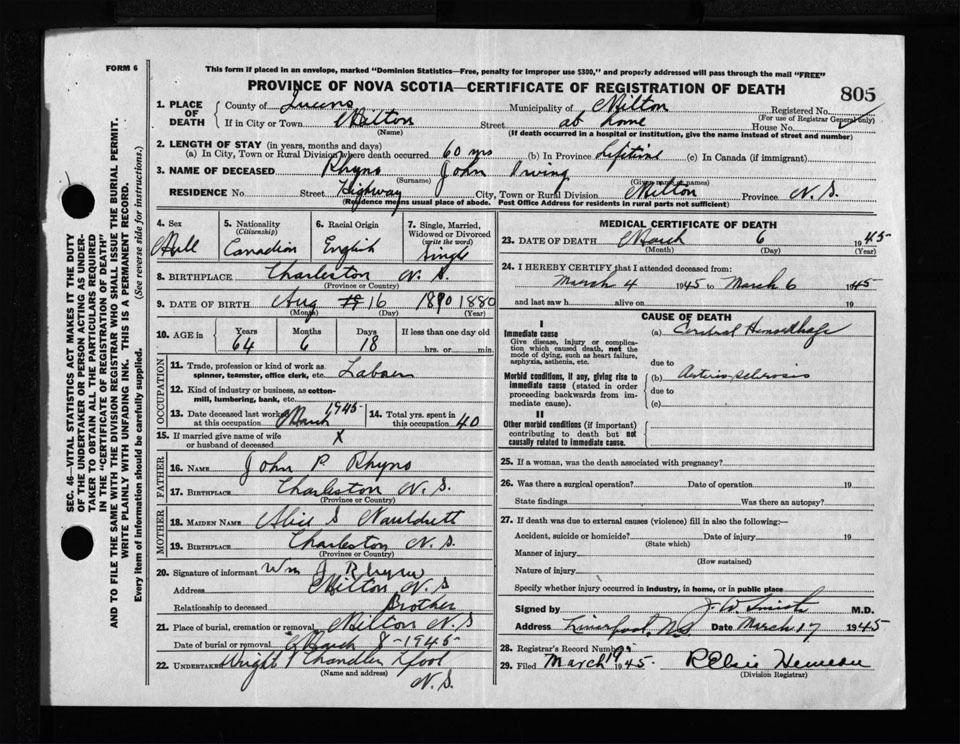 FORM 6
This form if placed in an envelope, marked "Dominion Statistics—Free, penalty for improper use $300," and properly addressed will pass through the mail "FREE"
PROVINCE OF NOVA SCOTIA—CERTIFICATE OF REGISTRATION OF DEATH
805
1. PLACE OF DEATH County of Queens Municipality of Milton Registered No.
(For use of Registrar General only)
If in City or Town Milton Street at home House No.
(Name) (If death occurred in a hospital or institution, give the name instead of street and number)
2. LENGTH OF STAY (in years, months and days)
(a) In City, Town or Rural Division where death occurred 60 yrs (b) In Province Lifetime (c) In Canada (if immigrant)
3. NAME OF DECEASED Rhyno John Irving
(Surname) (Given or names)
RESIDENCE No. Street Highway City, Town or Rural Division Milton Province N.S.
(Residence means usual place of abode. Post Office Address for residents in rural parts not sufficient)
4. Sex 5. Nationality (Citizenship) 6. Racial Origin 7. Single, Married, Widowed or Divorced (write the word)
Canadian English Single
8. BIRTHPLACE Charleston N.S.
(Province or Country)
9. DATE OF BIRTH Aug 16 1890 1880
(Month) (Day) (Year)
10. AGE in Years Months Days If less than one day old
64 6 18 hrs. or min.
OCCUPATION
11. Trade, profession or kind of work as spinner, teamster, office clerk, etc. Labaer
12. Kind of industry or business, as cotton-mill, lumbering, bank, etc.
13. Date deceased last worked at this occupation March 1945 14. Total yrs. spent in this occupation 40
15. If married give name of wife or husband of deceased X
FATHER
16. NAME John P. Rhyno
17. BIRTHPLACE Charleston N.S.
(Province or Country)
MOTHER
18. MAIDEN NAME Alice S
19. BIRTHPLACE Charleston N.S.
(Province or Country)
20. Signature of informant Wm J Rhyno
Address Milton N.S
Relationship to deceased Brother
21. Place of burial, cremation or removal Milton N.S
Date of burial or removal March 8-1945
22. UNDERTAKER Wright Chandler Lpool
(Name and address)
N.S.
MEDICAL CERTIFICATE OF DEATH
23. DATE OF DEATH March 6 1945
(Month) (Day) (Year)
24. I HEREBY CERTIFY that I attended deceased from:
March 4 1945 to March 6 1945
and last saw h alive on 19
CAUSE OF DEATH
I
Immediate cause
Give disease, injury or complication which caused death, not the mode of dying, such as heart failure, asphyxia, asthenia, etc.
(a) Cerebral Hemorrhage
due to
Morbid conditions, if any, giving rise to immediate cause (stated in order proceeding backwards from immediate cause).
(b) Arterio sclerosis
due to
(c)
II
Other morbid conditions (if important) contributing to death but not causally related to immediate cause.
25. If a woman, was the death associated with pregnancy?
26. Was there a surgical operation? Date of operation 19
State findings Was there an autopsy?
27. If death was due to external causes (violence) fill in also the following:—
Accident, suicide or homicide? Date of injury 19
(State which)
Manner of injury
(How sustained)
Nature of injury
Specify whether injury occurred in industry, in home, or in public place
Signed by J. W Smith M.D.
Address Liverpool, N.S Date March 17 1945
28. Registrar's Record Number
29. Filed March 19 1945. R Elsie Hemeon
(Division Registrar)
SEC. 46—VITAL STATISTICS ACT MAKES IT THE DUTY
OF THE UNDERTAKER OR PERSON ACTING AS UNDER-
TAKER TO OBTAIN ALL THE PARTICULARS REQUIRED
IN THE "CERTIFICATE OF REGISTRATION OF DEATH"
AND TO FILE THE SAME WITH THE DIVISION REGISTRAR WHO SHALL ISSUE THE BURIAL PERMIT.
WRITE PLAINLY WITH UNFADING INK. THIS IS A PERMANENT RECORD.
Every item of information should be carefully supplied. (See reverse side for instructions.)